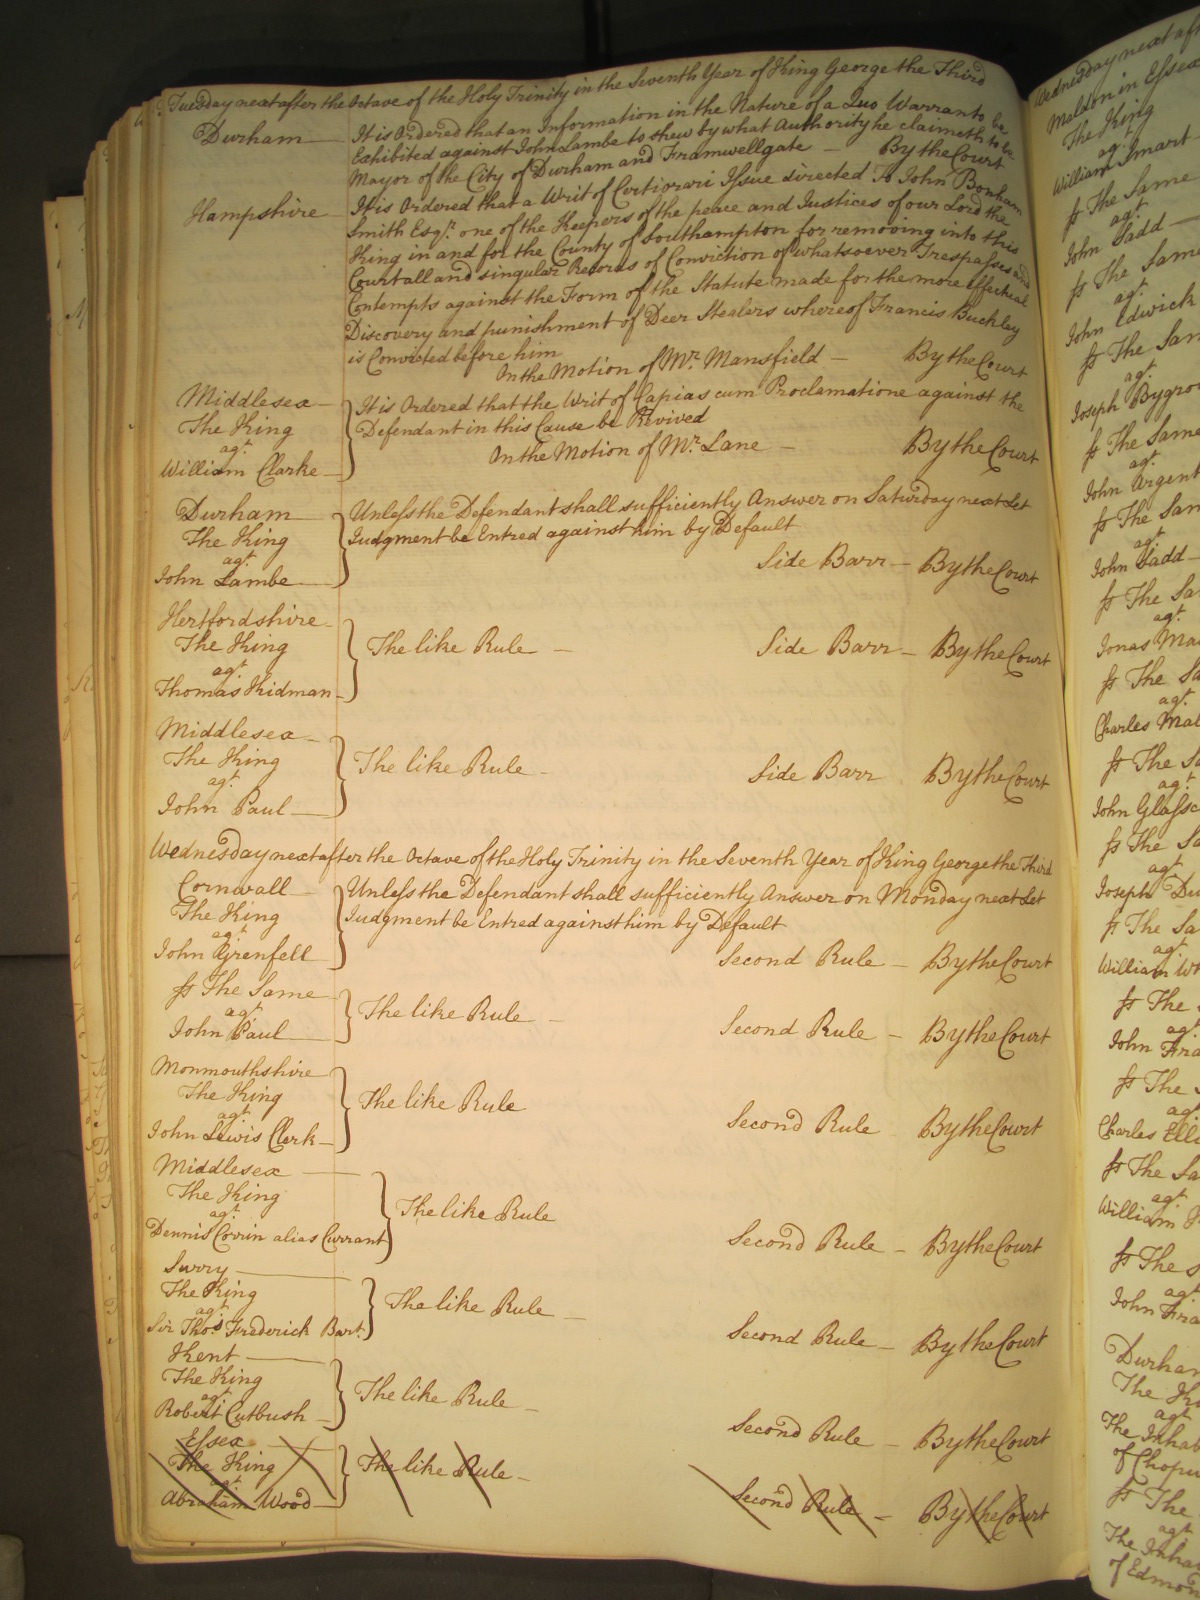 Tuesday next after the Octave of the Holy Trinity in the Seventh Year of King George the Third
Durham
It is Ordered that an Information in the Nature of a Quo Warranto be
Exhibited against John Lambe to shew by what Authority he claimeth to be
Mayor of the City of Durham and Framwellgate — By the Court
Hampshire
It is Ordered that a Writ of Certiorari Issue directed To John Bonham
Smith Esqr. one of the Keepers of the peace and Justices of our Lord the
King in and for the County of Southampton for removing into this
Court all and singular Records of Conviction of whatsoever Trespasses and
Contempts against the Form of the Statute made for the more effectual
Discovery and punishment of Deer Stealers whereof Francis Buckley
is Convicted before him
On the Motion of Mr. Mansfield — By the Court
Middlesex
The King
agt.
William Clarke
It is Ordered that the Writ of Capias cum Proclamatione against the
Defendant in this Cause be Revived
On the Motion of Mr. Lane — By the Court
Durham
The King
agt.
John Lambe
Unless the Defendant shall sufficiently Answer on Saturday next Let
Judgment be Entred against him by Default
Side Barr — By the Court
Hertfordshire
The King
agt.
Thomas Kidman
The like Rule — Side Barr — By the Court
Middlesex
The King
agt.
John Paul
The like Rule — Side Barr By the Court
Wednesday next after the Octave of the Holy Trinity in the Seventh Year of King George the Third
Cornwall
The King
agt.
John Grenfell
Unless the Defendant shall sufficiently Answer on Monday next Let
Judgment be Entred against him by Default
Second Rule — By the Court
ss The Same
agt.
John Paul
The like Rule — Second Rule — By the Court
Monmouthshire
The King
agt.
John Lewis Clerk
The like Rule Second Rule By the Court
Middlesex
The King
agt.
Dennis Corrin alias Currant
The like Rule Second Rule — By the Court
Surry
The King
agt.
Sir Thos. Frederick Bart.
The like Rule — Second Rule — By the Court
Kent
The King
agt.
Robert Cutbush
The like Rule — Second Rule — By the Court
Essex
The King
agt.
Abraham Wood
The like Rule — Second Rule — By the Court
Wednesday next
Maldon in Essex
The King
agt.
William Smart
ss The Same
agt.
John Sadd
ss The Same
agt.
John Edwick
ss The
agt.
Joseph
ss The Same
agt.
John Argent
ss The
agt.
John Sadd
ss The
agt.
Jonas
ss The
agt.
Charles
ss The
agt.
John
ss The
agt.
Joseph
ss The
agt.
William
ss The
agt.
John
ss The
agt.
Charles
ss The
agt.
William
ss The
agt.
John
The
agt.
The
of
ss The
agt.
The
of